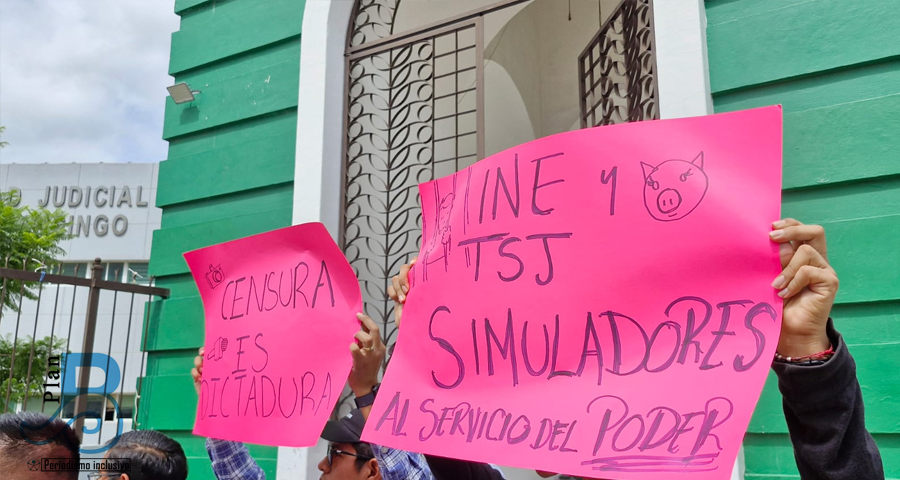 JUDICIAL
INGO
CENSURA
ES
DICTADURA
INE Y
TSJ
SIMULADORES
AL SERVICIO DEL PODER
Plan B
Periodismo inclusivo